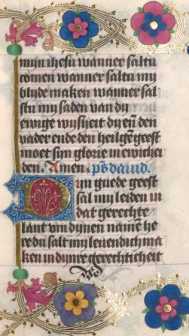 mijn ihesu wanner saltu
comen wanner saltu my
blyde maken wanner sal
stu my saden van dy
ewige wijsheit dy en den
vader ende den heilgē geest
moet sijn glorie in ewicheı
den. Amen. ps̄ dauid.
Dyn guede geest
sal my leiden in
dat gerechte
lant om dynen namē he
re du salt my leuendich ma
ken in dynre gerechticheit